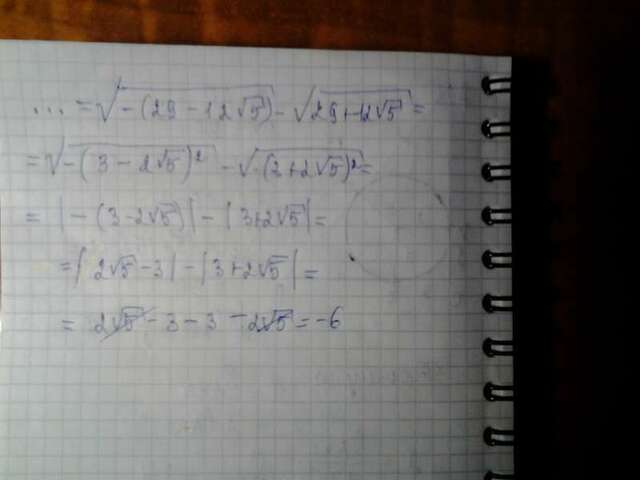 ... = √(-(29 - 12√5)) - √(29 + 12√5) =
= √(-(3 - 2√5)²) - √((2 + 2√5)²) =
= |-(3 - 2√5)| - |3 + 2√5| =
= |2√5 - 3| - |3 + 2√5| =
= 2√5 - 3 - 3 - 2√5 = -6